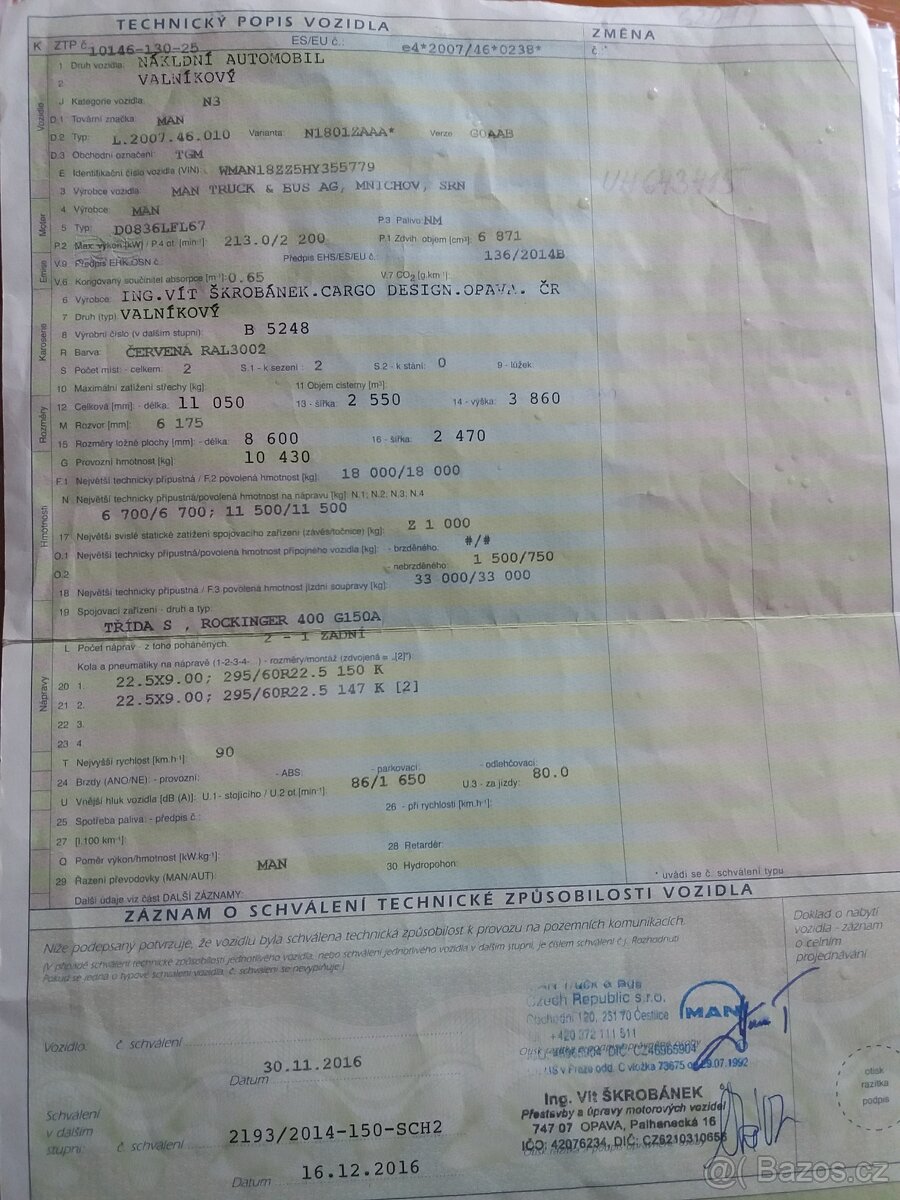 TECHNICKÝ POPIS VOZIDLA
ZMĚNA
K ZTP č. 10146-130-25 ES/EU č.: e4*2007/46*0238* č.*
1 Druh vozidla: NÁKLDNÍ AUTOMOBIL
2 VALNÍKOVÝ
J Kategorie vozidla: N3
D.1 Tovární značka: MAN
D.2 Typ: L.2007.46.010 Varianta: N1801ZAAA* Verze: G0AAB
D.3 Obchodní označení: TGM
E Identifikační číslo vozidla (VIN): WMAN18ZZ5HY355779
3 Výrobce vozidla: MAN TRUCK & BUS AG, MNICHOV, SRN
Vozidlo
4 Výrobce: MAN
5 Typ: D0836LFL67 P.3 Palivo: NM
P.2 Max. výkon [kW] / P.4 ot. [min⁻¹]: 213.0/2 200 P.1 Zdvih. objem [cm³]: 6 871
Motor
V.9 Předpis EHK OSN č.: Předpis EHS/ES/EU č.: 136/2014B
V.6 Korigovaný součinitel absorpce [m⁻¹]: 0.65 V.7 CO₂ [g.km⁻¹]:
Emise
6 Výrobce: ING.VÍT ŠKROBÁNEK.CARGO DESIGN.OPAVA. ČR
7 Druh (typ): VALNÍKOVÝ
8 Výrobní číslo (v dalším stupni): B 5248
R Barva: ČERVENÁ RAL3002
S Počet míst: - celkem: 2 S.1 - k sezení: 2 S.2 - k stání: 0 9 - lůžek:
10 Maximální zatížení střechy [kg]: 11 Objem cisterny [m³]:
Karoserie
12 Celková [mm]: - délka: 11 050 13 - šířka: 2 550 14 - výška: 3 860
M Rozvor [mm]: 6 175
15 Rozměry ložné plochy [mm]: - délka: 8 600 16 - šířka: 2 470
Rozměry
G Provozní hmotnost [kg]: 10 430
F.1 Největší technicky přípustná / F.2 povolená hmotnost [kg]: 18 000/18 000
N Největší technicky přípustná/povolená hmotnost na nápravu [kg]: N.1; N.2, N.3, N.4
6 700/6 700; 11 500/11 500
17 Největší svislé statické zatížení spojovacího zařízení (závěs/točnice) [kg]: Z 1 000
O.1 Největší technicky přípustná/povolená hmotnost přípojného vozidla [kg]: - brzděného: #/#
O.2 nebrzděného: 1 500/750
18 Největší technicky přípustná / F.3 povolená hmotnost jízdní soupravy [kg]: 33 000/33 000
Hmotnosti
19 Spojovací zařízení - druh a typ:
TŘÍDA S , ROCKINGER 400 G150A
L Počet náprav - z toho poháněných: 2 - 1 ZADNÍ
Kola a pneumatiky na nápravě (1-2-3-4-...) - rozměry/montáž (zdvojená = „[2]")
20 1. 22.5X9.00; 295/60R22.5 150 K
21 2. 22.5X9.00; 295/60R22.5 147 K [2]
22 3.
23 4
Nápravy
T Nejvyšší rychlost [km.h⁻¹]: 90
24 Brzdy (ANO/NE): - provozní: - ABS: - parkovací: - odlehčovací:
U Vnější hluk vozidla [dB (A)]: U.1 - stojícího / U.2 ot.[min⁻¹]: 86/1 650 U.3 - za jízdy: 80.0
25 Spotřeba paliva: - předpis č.: 26 - při rychlosti [km.h⁻¹]:
27 [l.100 km⁻¹]:
28 Retardér:
Q Poměr výkon/hmotnost [kW.kg⁻¹]:
29 Řazení převodovky (MAN/AUT): MAN 30 Hydropohon:
* uvádí se č. schválení typu
Další údaje viz část DALŠÍ ZÁZNAMY:
ZÁZNAM O SCHVÁLENÍ TECHNICKÉ ZPŮSOBILOSTI VOZIDLA
Níže podepsaný potvrzuje, že vozidlu byla schválena technická způsobilost k provozu na pozemních komunikacích.
(V případě schválení technické způsobilosti jednotlivého vozidla, nebo schválení jednotlivého vozidla v dalším stupni, je číslem schválení č.j. Rozhodnutí
Pokud se jedná o typové schválení vozidla, č. schválení se nevyplňuje.)
Doklad o nabytí
vozidla - záznam
o celním
projednávání
Truck & Bus
Czech Republic s.r.o.
Obchodní 120, 251 70 Čestlice
+420 272 111 811
MAN
Vozidlo: č. schválení
30.11.2016
Datum
Schválení
v dalším
stupni: č. schválení 2193/2014-150-SCH2
Datum 16.12.2016
Ing. Vít ŠKROBÁNEK
Přestavby a úpravy motorových vozidel
747 07 OPAVA, Palhanecká 16
IČO: 42076234, DIČ: CZ6210310656
otisk
razítka
podpis
@( Bazos.cz